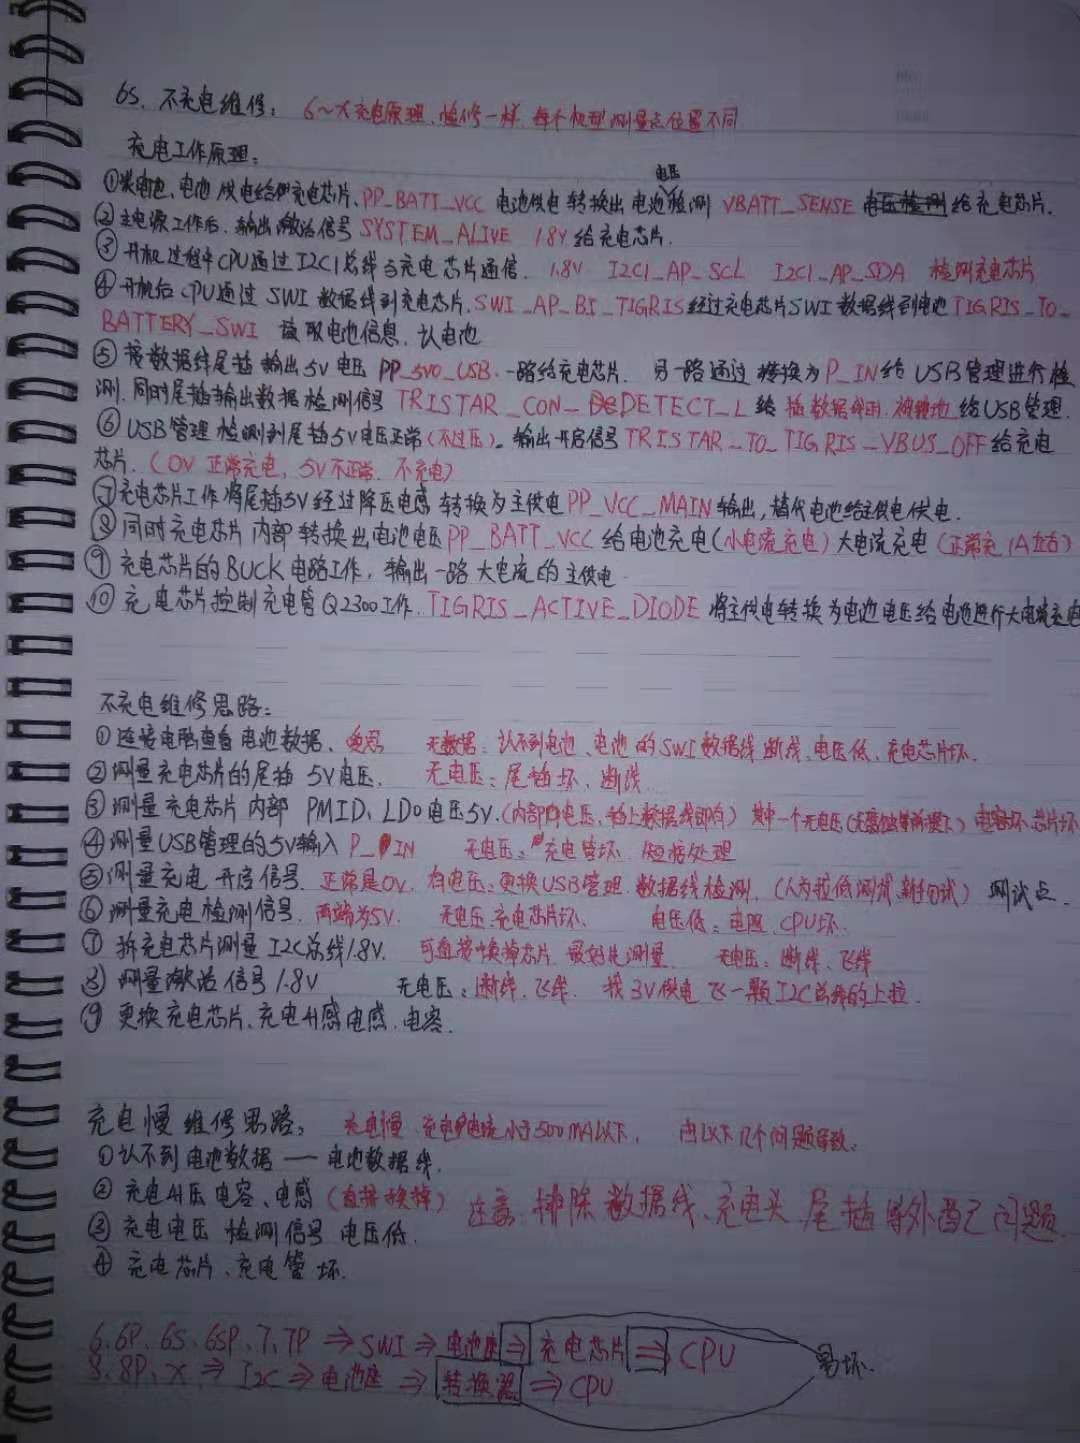 6S. 不充电维修: 6~X充电原理、检修一样.每个机型测量点位置不同
充电工作原理:
电压
①装电池、电池供电给充电芯片.PP_BATT_VCC 电池供电 转换出电池检测 VBATT_SENSE 给充电芯片.
②主电源工作后.输出激活信号 SYSTEM_ALIVE 1.8V给充电芯片.
③开机过程中CPU通过I2C1总线与充电芯片通信. 1.8V I2C1_AP_SCL I2C1_AP_SDA 检测充电芯片
④开机后CPU通过SWI数据线到充电芯片.SWI_AP_BI_TIGRIS经过充电芯片SWI数据线到电池TIGRIS_TO_
BATTERY_SWI 读取电池信息.认电池
⑤接数据线尾插输出5V电压 PP_5V0_USB.一路给充电芯片. 另一路通过 转换为P_IN给USB管理进行检
测.同时尾插输出数据检测信号 TRISTAR_CON_DETECT_L给 插数据线用. 给USB管理.
⑥USB管理检测到尾插5V电压正常(不过压)。输出开启信号TRISTAR_TO_TIGRIS_VBUS_OFF给充电
芯片.(0V正常充电, 5V不正常.不充电)
⑦充电芯片工作将尾插5V经过降压电感转换为主供电PP_VCC_MAIN输出,替代电池给主供电供电.
⑧同时充电芯片内部转换出电池电压PP_BATT_VCC给电池充电(小电流充电)大电流充电(正常充1A左右)
⑨充电芯片的BUCK电路工作,输出一路大电流的主供电
⑩充电芯片控制充电管Q2300工作.TIGRIS_ACTIVE_DIODE将主供电转换为电池电压给电池进行大电流充电
不充电维修思路:
①连接电脑查看电池数据. 无数据:认不到电池、电池的SWI数据线断线、电压低、充电芯片坏.
②测量充电芯片的尾插5V电压. 无电压:尾插坏、断线
③测量充电芯片内部PMID、LDO电压5V.(内部的电压、插上数据线即有) 其中一个无电压 电容坏.芯片坏
④测量USB管理的5V输入P_IN 无电压:充电管坏.短接处理
⑤测量充电开启信号.正常是0V.有电压:更换USB管理.数据线检测.(人为拉低测试) 测试点.
⑥测量充电检测信号.两端为5V. 无电压:充电芯片坏. 电压低:电阻.CPU坏.
⑦拆充电芯片测量I2C总线1.8V. 可直接换掉芯片.最好先测量. 无电压:断线、飞线
⑧测量激活信号1.8V 无电压:断线.飞线. 找3V供电飞一颗I2C总线的上拉.
⑨更换充电芯片、充电升感电感.电容.
充电慢维修思路: 充电慢.充电电流小于500MA以下, 由以下几个问题导致:
①认不到电池数据——电池数据线.
②充电升压电容、电感(直接换掉) 注意:排除数据线、充电头.尾插等外设之问题
③充电电压检测信号电压低.
④充电芯片、充电管坏.
6、6P、6S、6SP、7、7P⇒SWI⇒电池座⇒充电芯片⇒CPU
8、8P、X⇒I2C⇒电池座⇒转换器⇒CPU 易坏.